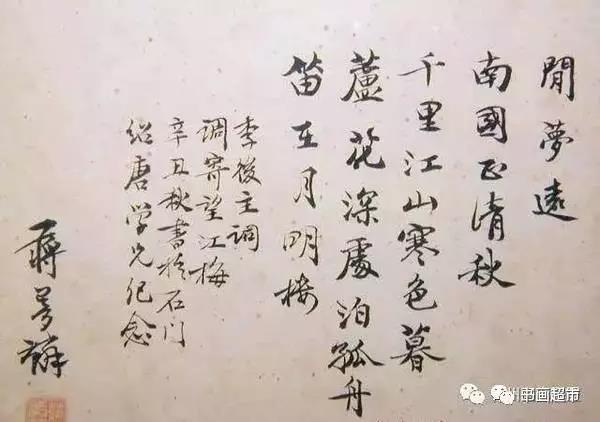 閒夢遠
南國正清秋
千里江山寒色暮
蘆花深處泊孤舟
笛在月明樓
李後主詞
调寄望江梅
辛丑秋書於石门
绍唐学兄纪念
蒋梦麟
书画超市